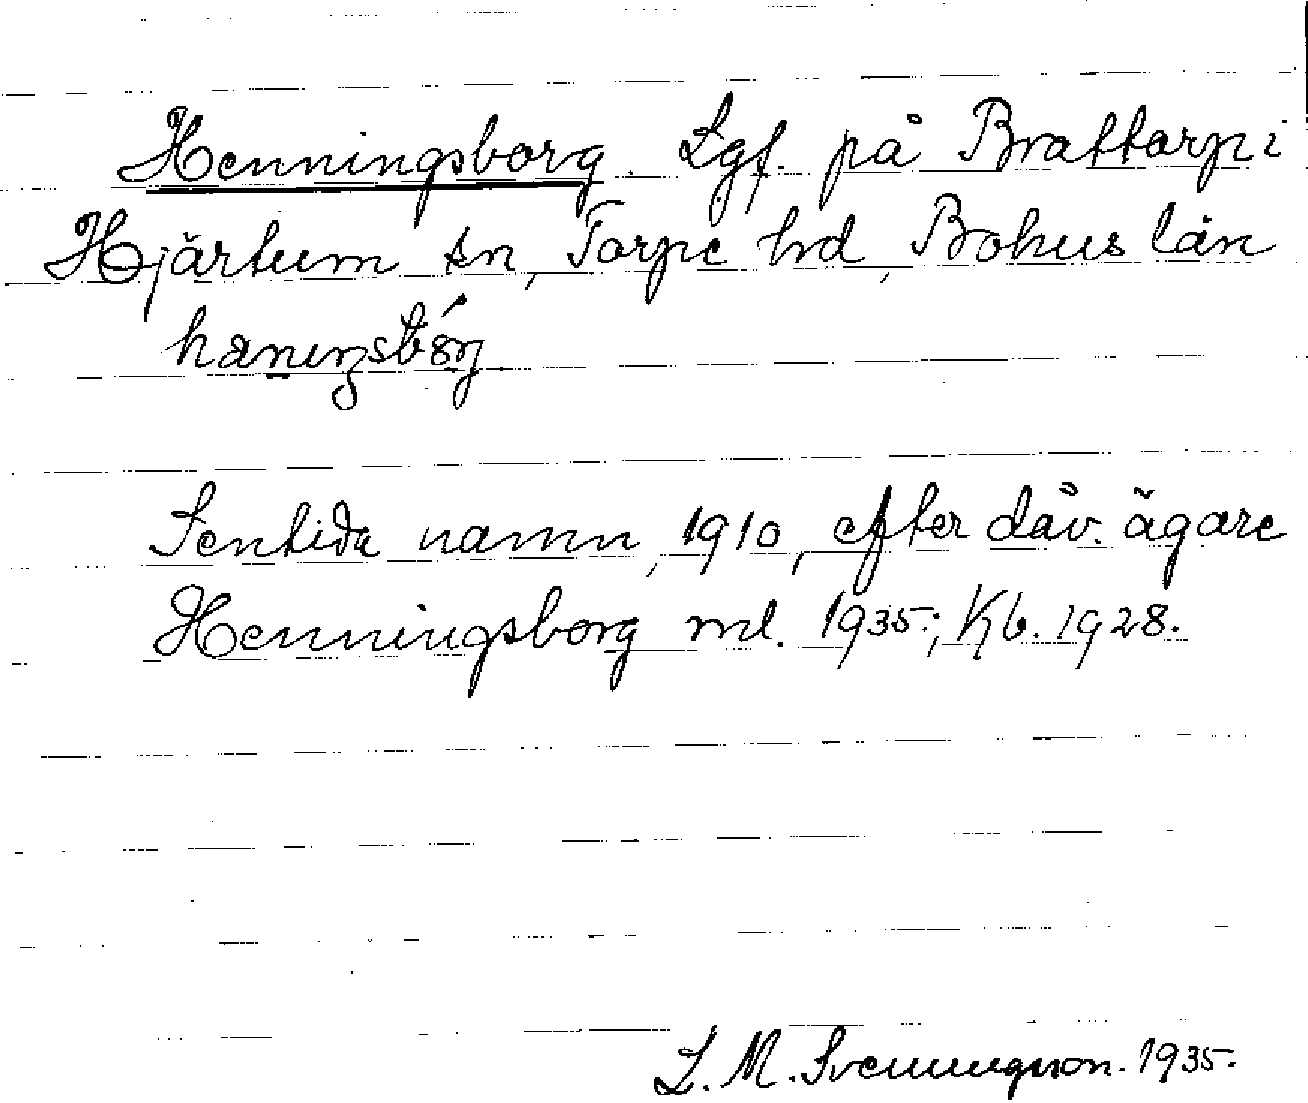 Henningsborg Lgf. på Brattorp i
Hjärtum sn, Torpe hd, Bohus län
Sentida namn, 1910, efter dåv. ägare
Henningsborg ml. 1935; Kb. 1928.
L. M. Svenungsson. 1935.